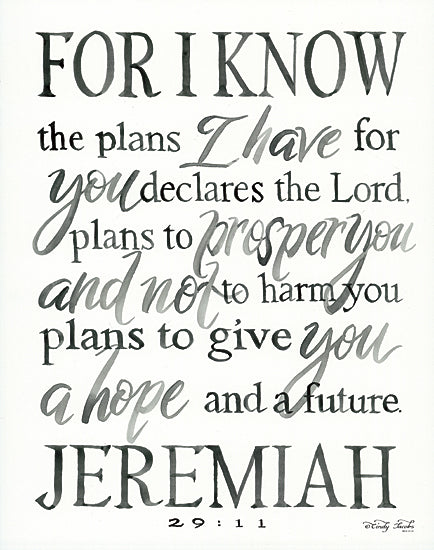 FOR I KNOW
the plans I have for
you declares the Lord,
plans to prosper you
and not to harm you
plans to give you
a hope and a future.
JEREMIAH
29:11
©Cindy Jacobs